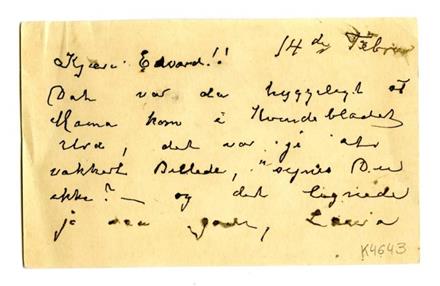 14 de Febru
Kjære Edvard!!
Det var da hyggeligt at
Mama kom i Kvindebladet
Urd, det var jo et
vakkert Billede, synes Du
ikke? — og det lignede
jo saa godt, Laura
K4643